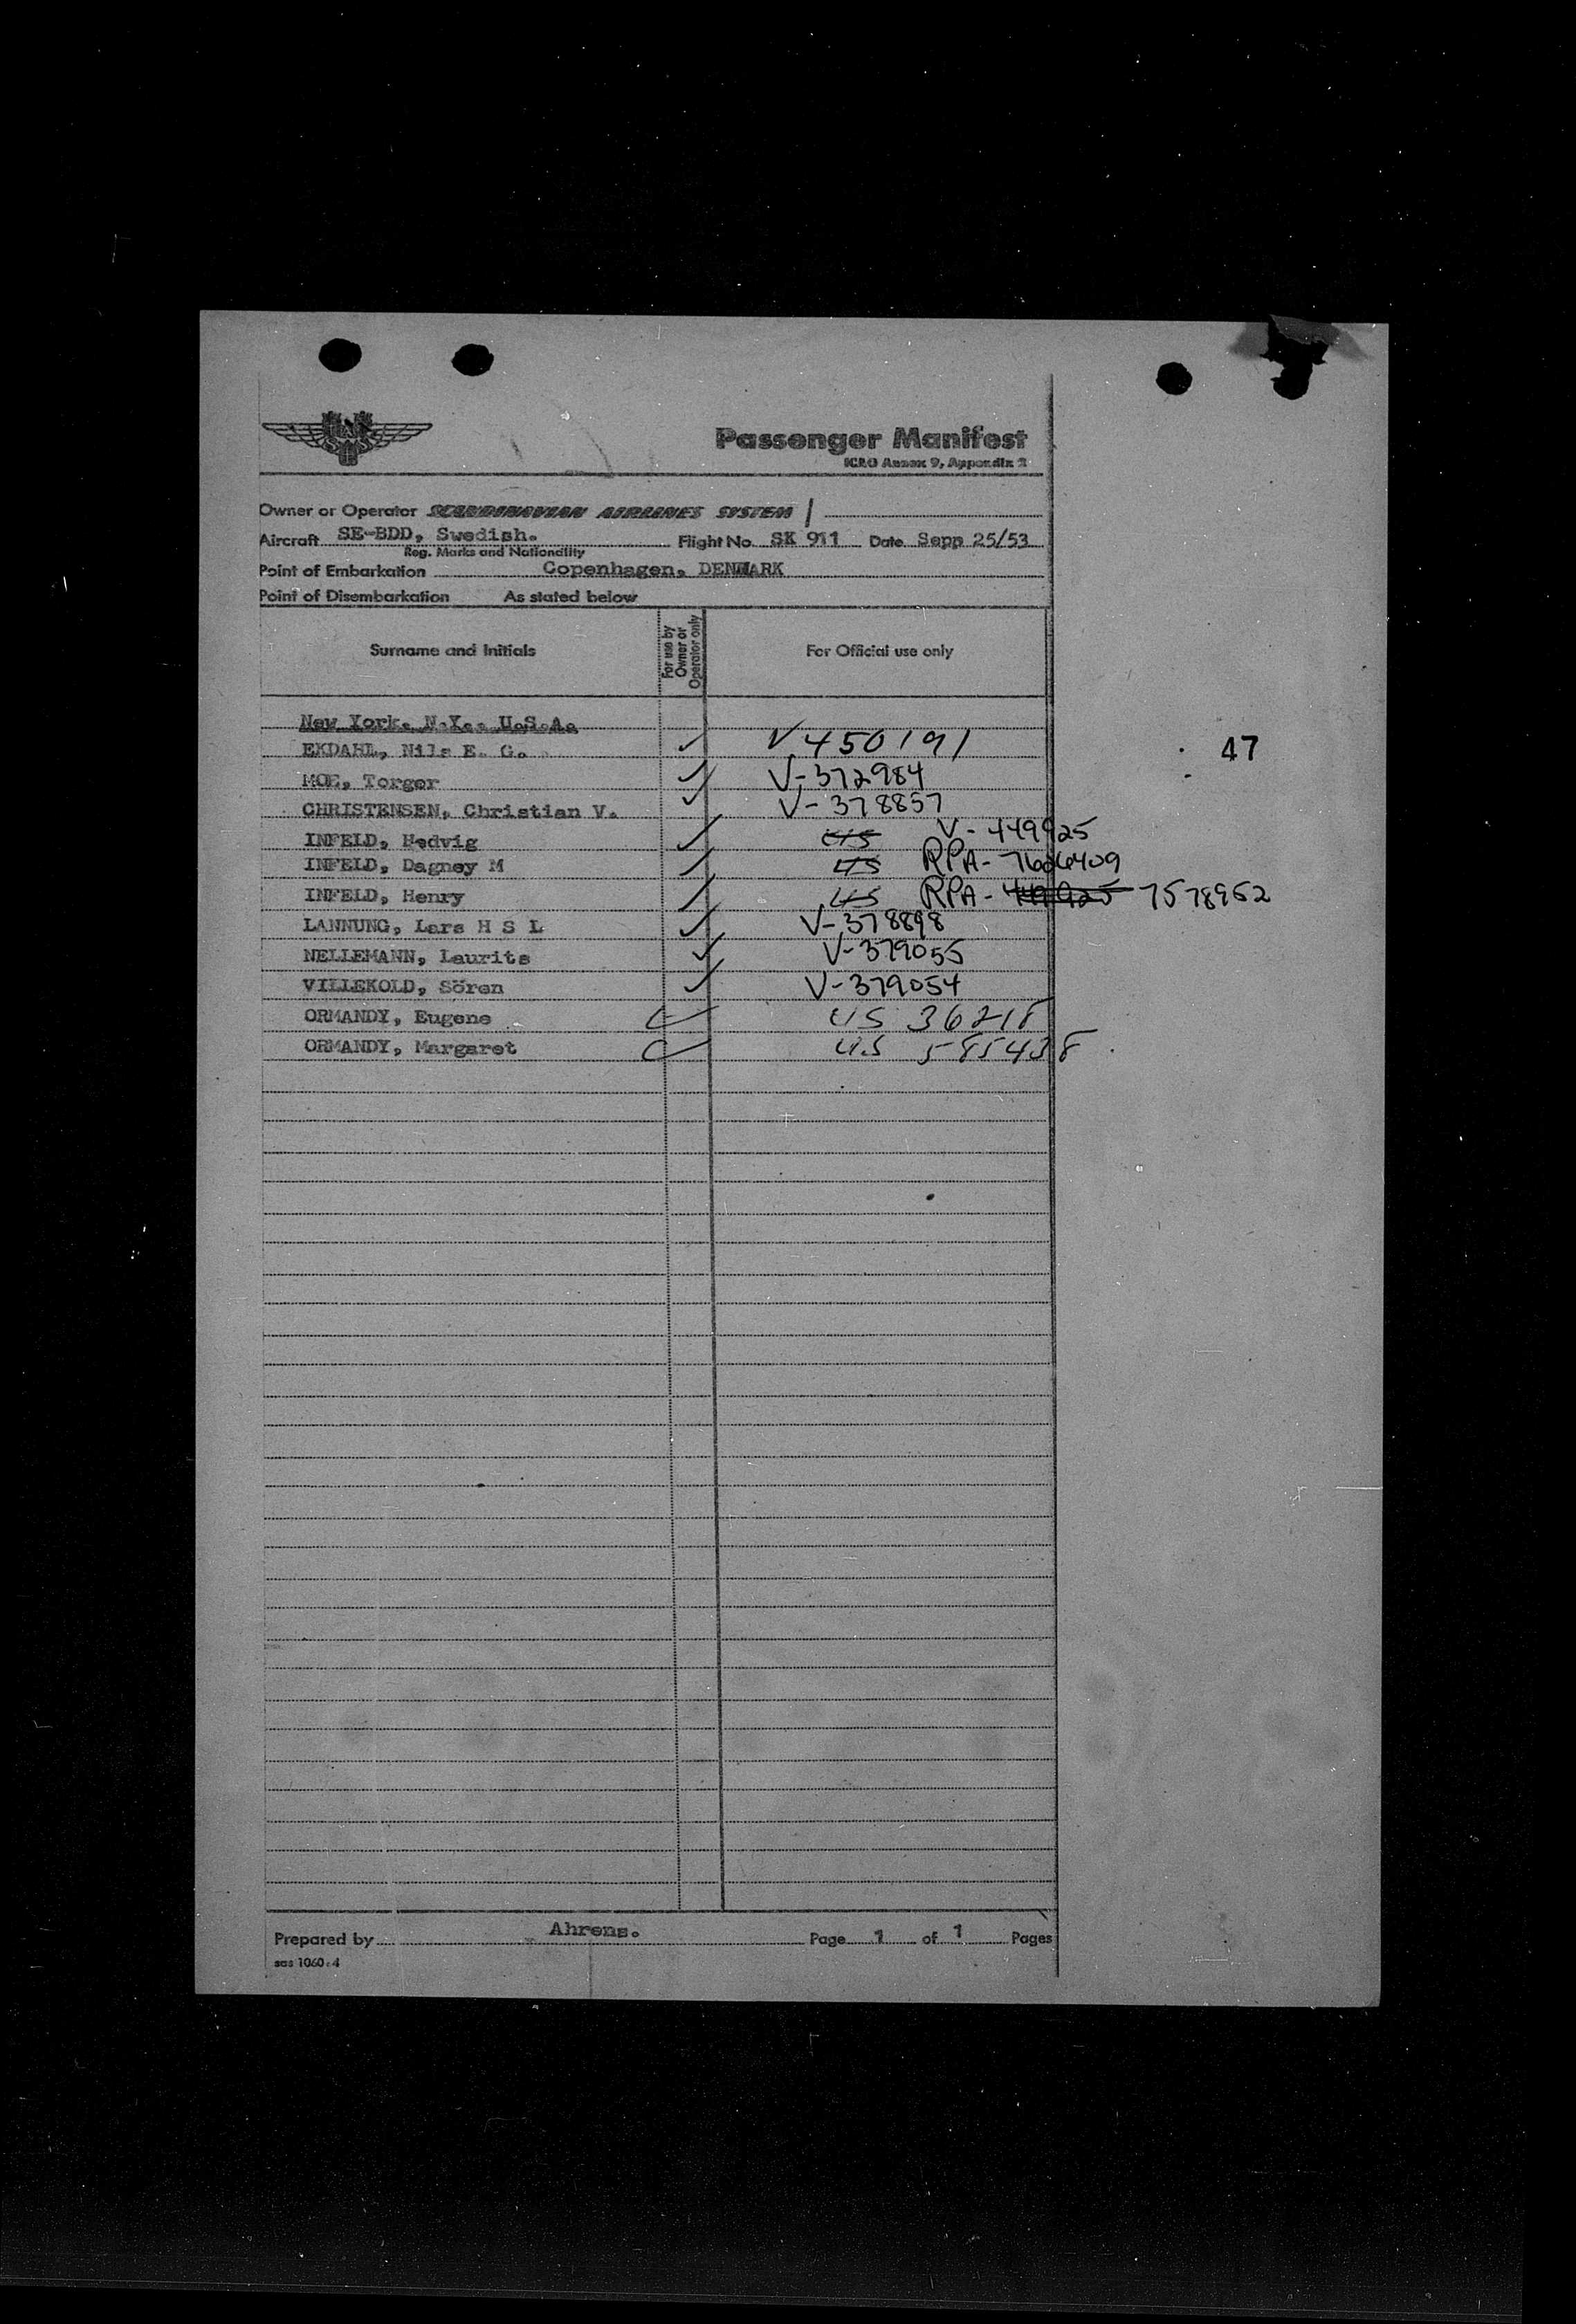 Passenger Manifest
ICAO Annex 9, Appendix 2
Owner or Operator SCANDINAVIAN AIRLINES SYSTEM
Aircraft SE-BDD, Swedish. Flight No. SK 911 Date Sepp 25/53
Reg. Marks and Nationality
Point of Embarkation Copenhagen, DENMARK
Point of Disembarkation As stated below
Surname and Initials For use by Owner or Operator only For Official use only
New York. N.Y.. U.S.A.
EKDAHL, Nils E. G. ✓ V 450191
47
MOE, Torger ✓ V-372984
CHRISTENSEN, Christian V. ✓ V-378857
INFELD, Hedvig ✓ US V-449925
INFELD, Dagney M ✓ US RPA-7606409
INFELD, Henry ✓ US RPA-449925 7578952
LANNUNG, Lars H S L ✓ V-378898
NELLEMANN, Laurits ✓ V-379055
VILLEKOLD, Sören ✓ V-379054
ORMANDY, Eugene US 36218
ORMANDY, Margaret US 585438
Prepared by Ahrens. Page 1 of 1 Pages
sas 1060:4